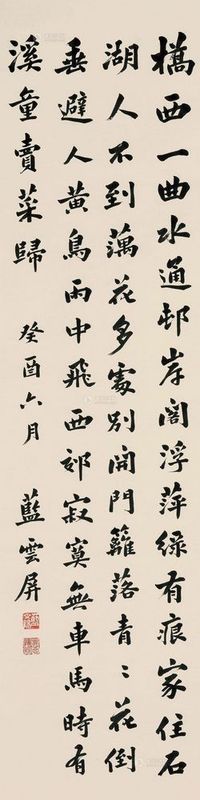 橋西一曲水通邨岸閣浮萍綠有痕家住石
湖人不到藕花多處別開門籬落青〻花倒
垂避人黃鳥雨中飛西郊寂寞無車馬時有
溪童賣菜歸 癸酉六月 藍雲屏